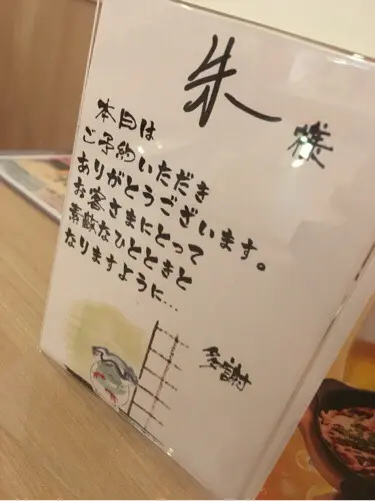 朱 様
本日は
ご予約いただき
ありがとうございます。
お客さまにとって
素敵なひとときと
なりますように…
多謝